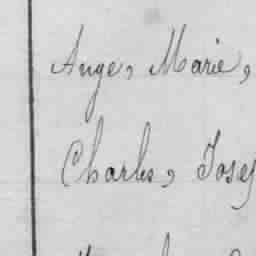 Ange, Marie,
Charles, Josef